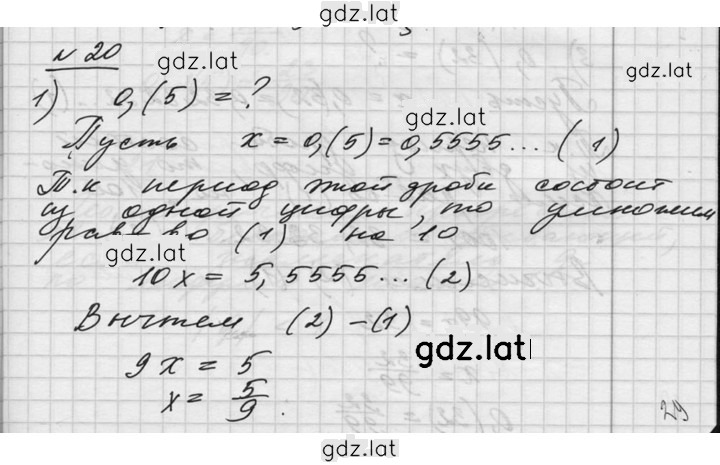 gdz.lat
№ 20
gdz.lat
gdz.lat
1) 0,(5) = ?
gdz.lat
Пусть x = 0,(5) = 0,5555... (1)
Т.к период этой дроби состоит
из одной цифры, то умножим
равво (1) на 10
gdz.lat
10x = 5,5555... (2)
Вычтем (2) - (1)
gdz.lat
9x = 5
x = 5/9.
29
gdz.lat